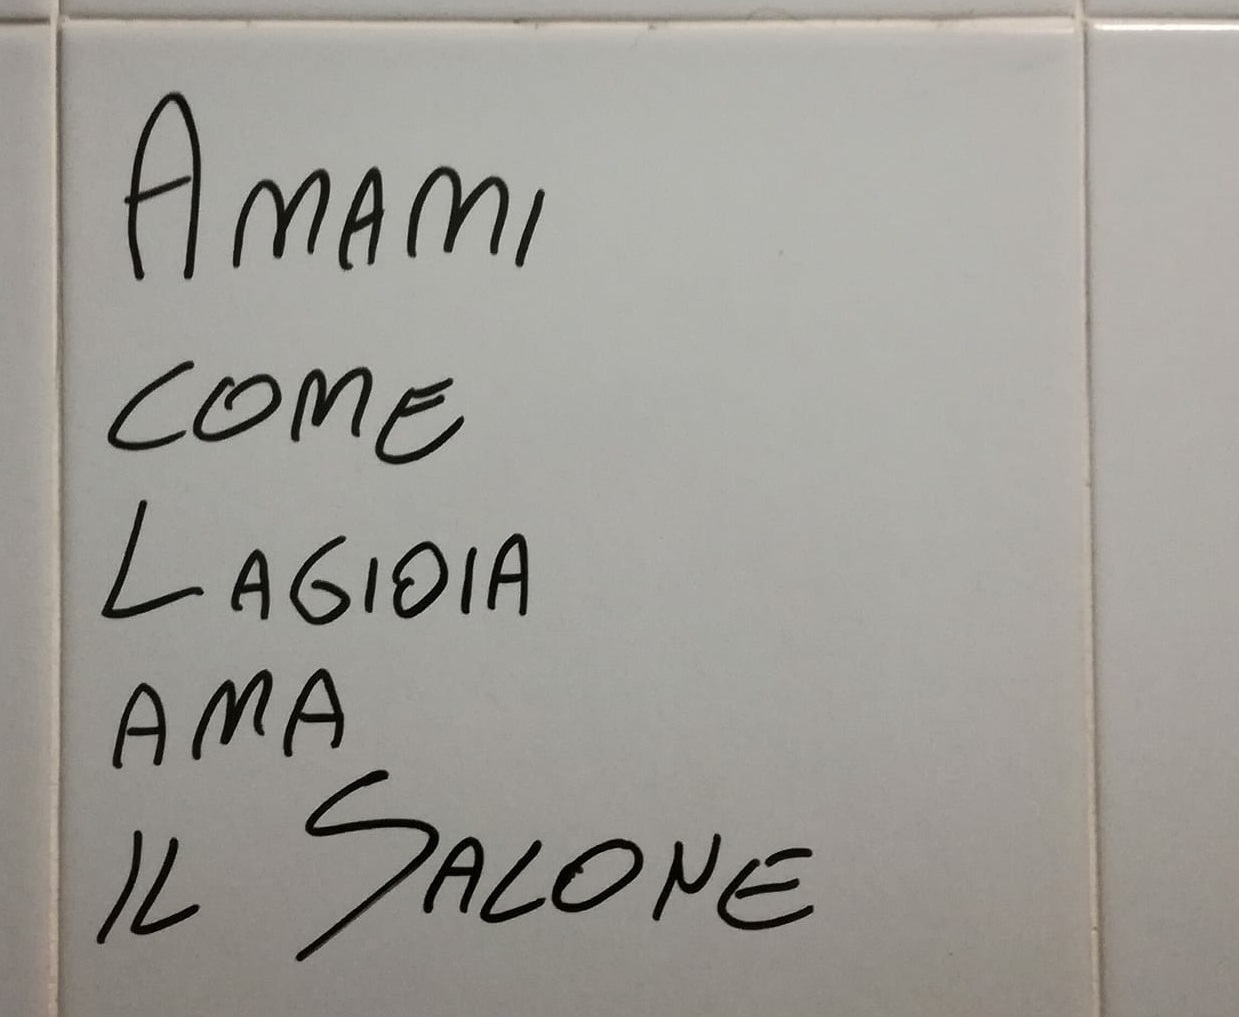 AMAMI
COME
LAGIOIA
AMA
IL SALONE